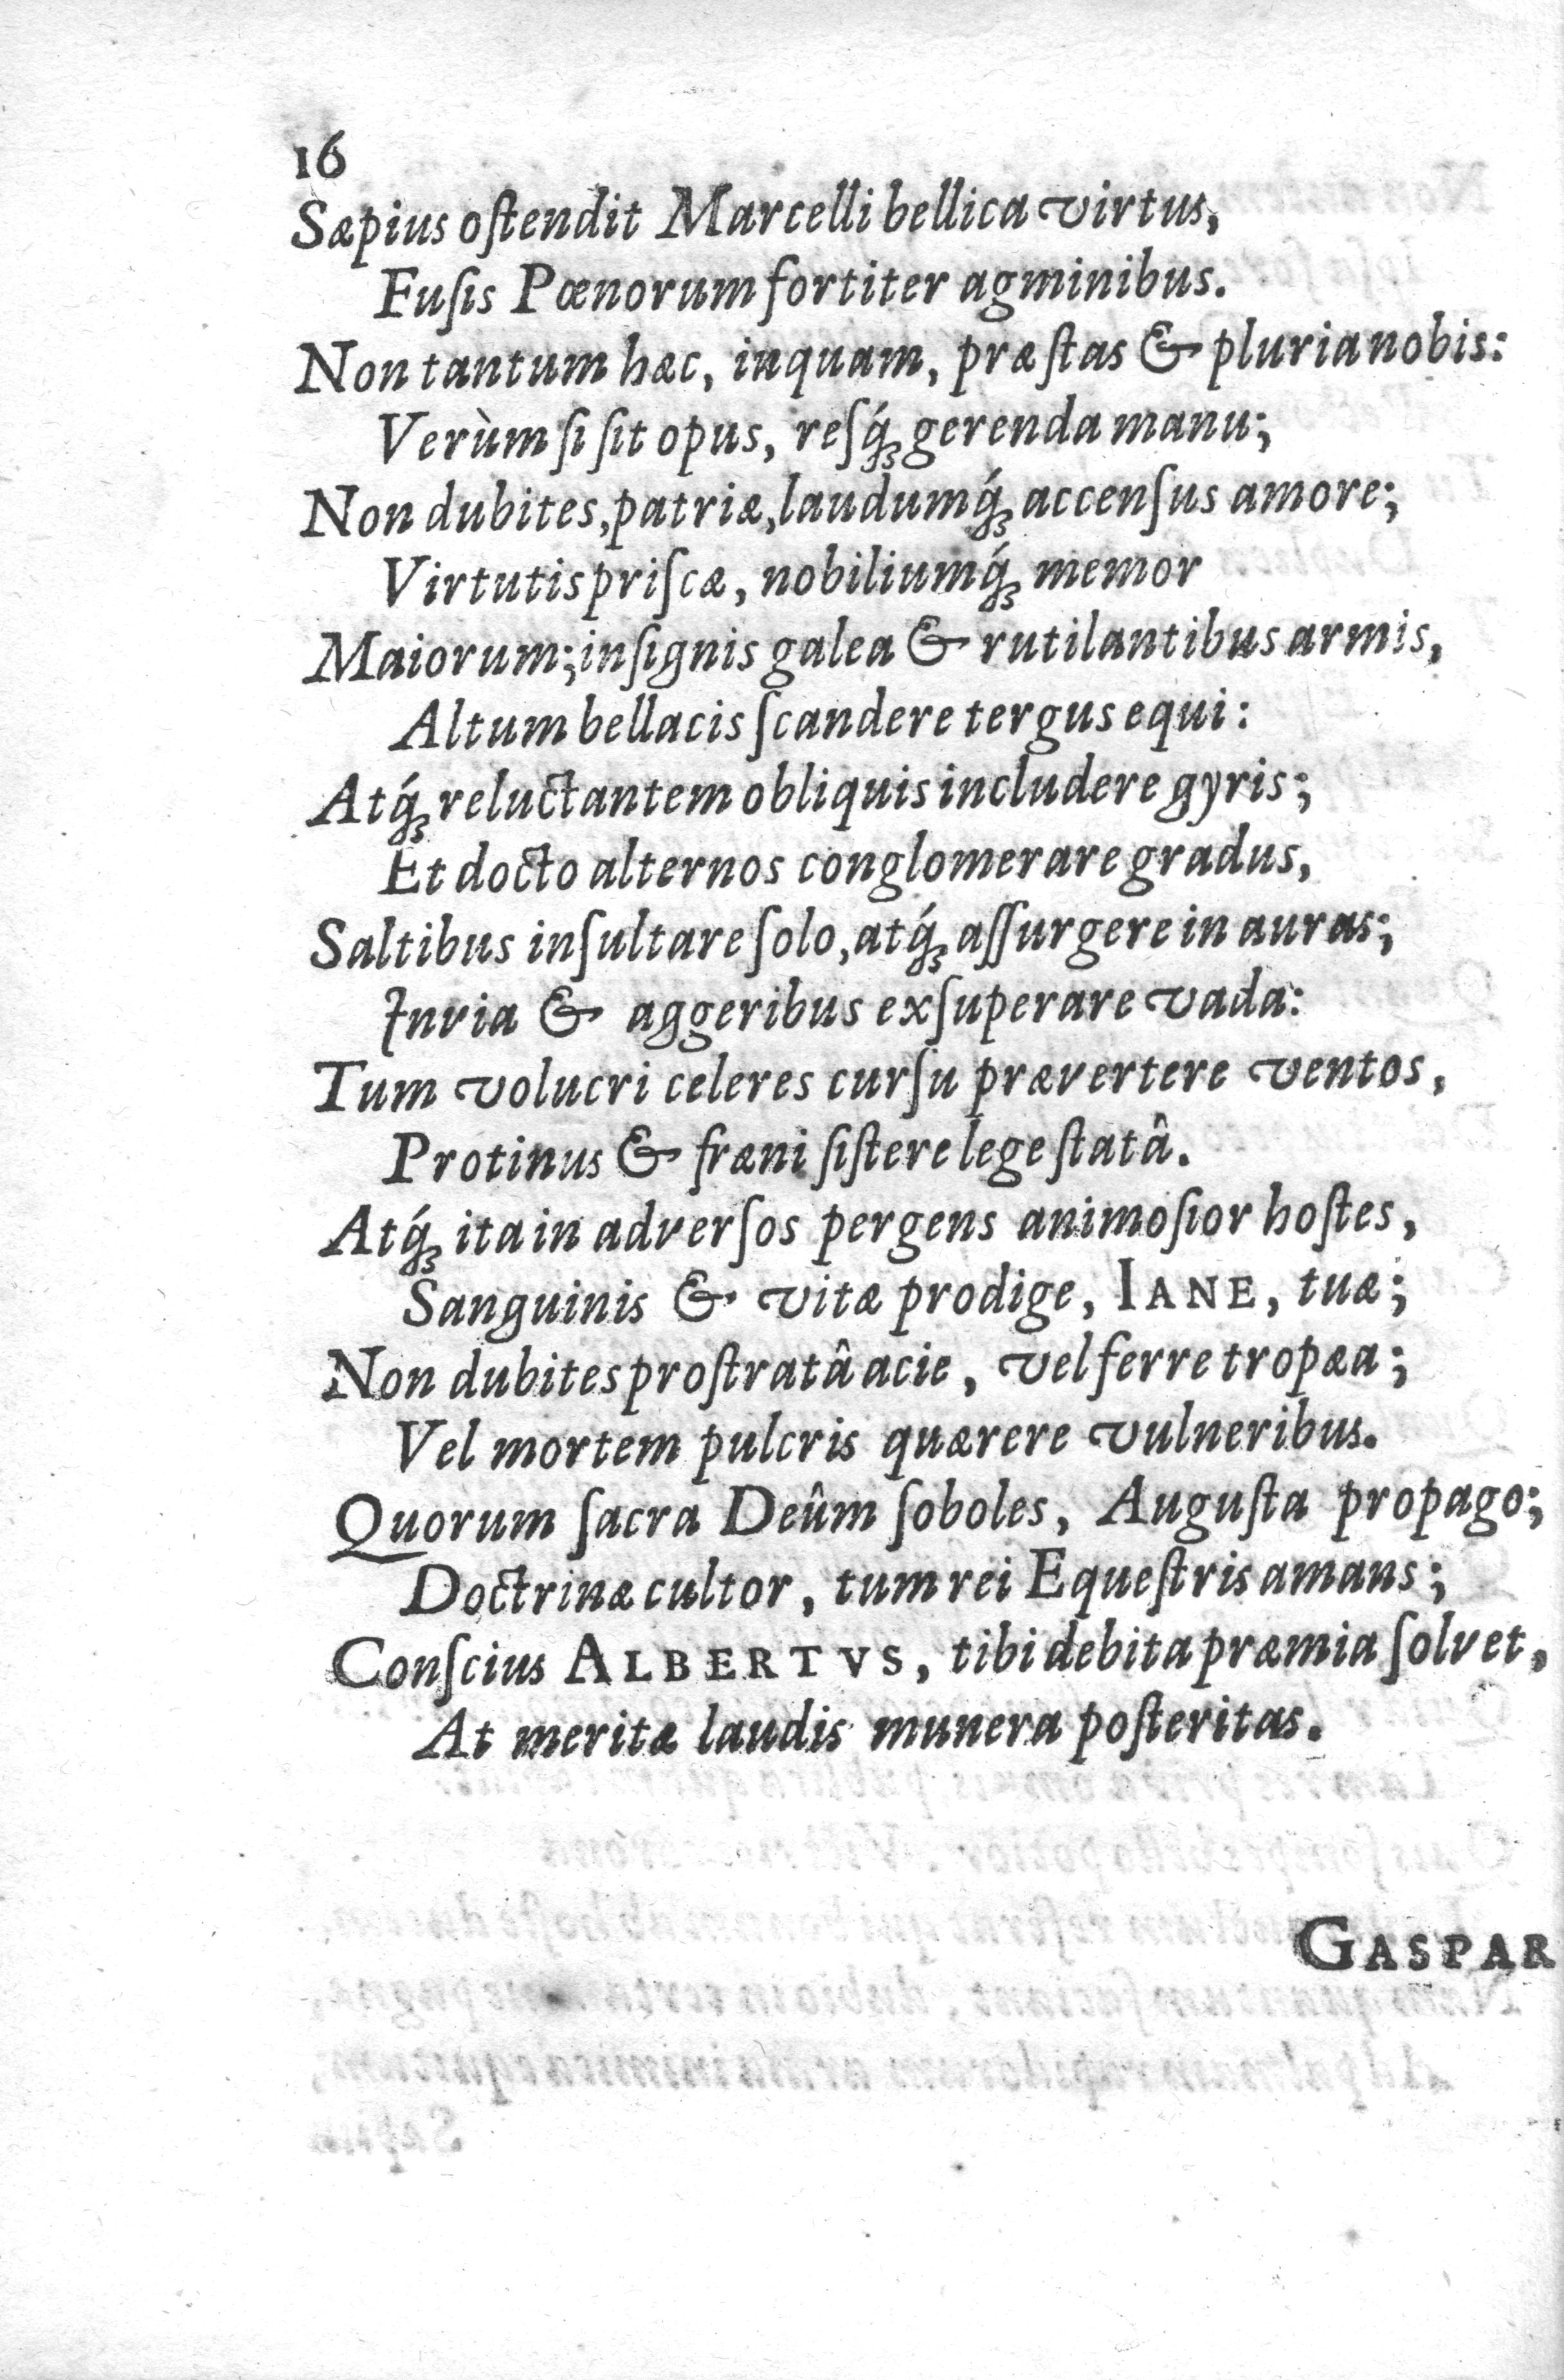 16
Sæpius oſtendit Marcelli bellica virtus,
Fuſis Pœnorum fortiter agminibus.
Non tantum hæc, inquam, præſtas & pluria nobis:
Verùm ſi ſit opus, reſq́; gerenda manu;
Non dubites, patriæ, laudumq́; accenſus amore;
Virtutis priſcæ, nobiliumq́; memor
Maiorum; inſignis galea & rutilantibus armis,
Altum bellacis ſcandere tergus equi:
Atq́; reluctantem obliquis includere gyris;
Et docto alternos conglomerare gradus,
Saltibus inſultare ſolo, atq́; aſſurgere in auras;
Invia & aggeribus exſuperare vada:
Tum volucri celeres curſu prævertere ventos,
Protinus & fræni ſiſtere lege ſtatâ.
Atq́; ita in adverſos pergens animoſior hoſtes,
Sanguinis & vitæ prodige, IANE, tuæ;
Non dubites proſtratâ acie, vel ferre tropæa;
Vel mortem pulcris quærere vulneribus.
Quorum ſacra Deûm ſoboles, Auguſta propago;
Doctrinæ cultor, tum rei Equeſtris amans;
Conſcius ALBERTVS, tibi debita præmia ſolvet,
At meritæ laudis munera poſteritas.
GASPAR